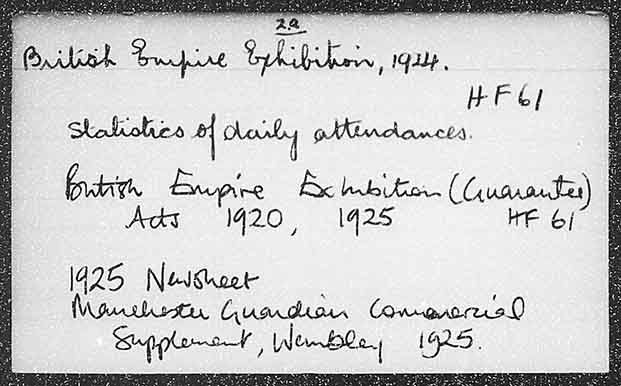 2a
British Empire Exhibition, 1924.
HF61
Statistics of daily attendances.
British Empire Exhibition (Guarantee)
Acts 1920, 1925 HF 61
1925 Newsheet
Manchester Guardian Commercial
Supplement, Wembley 1925.